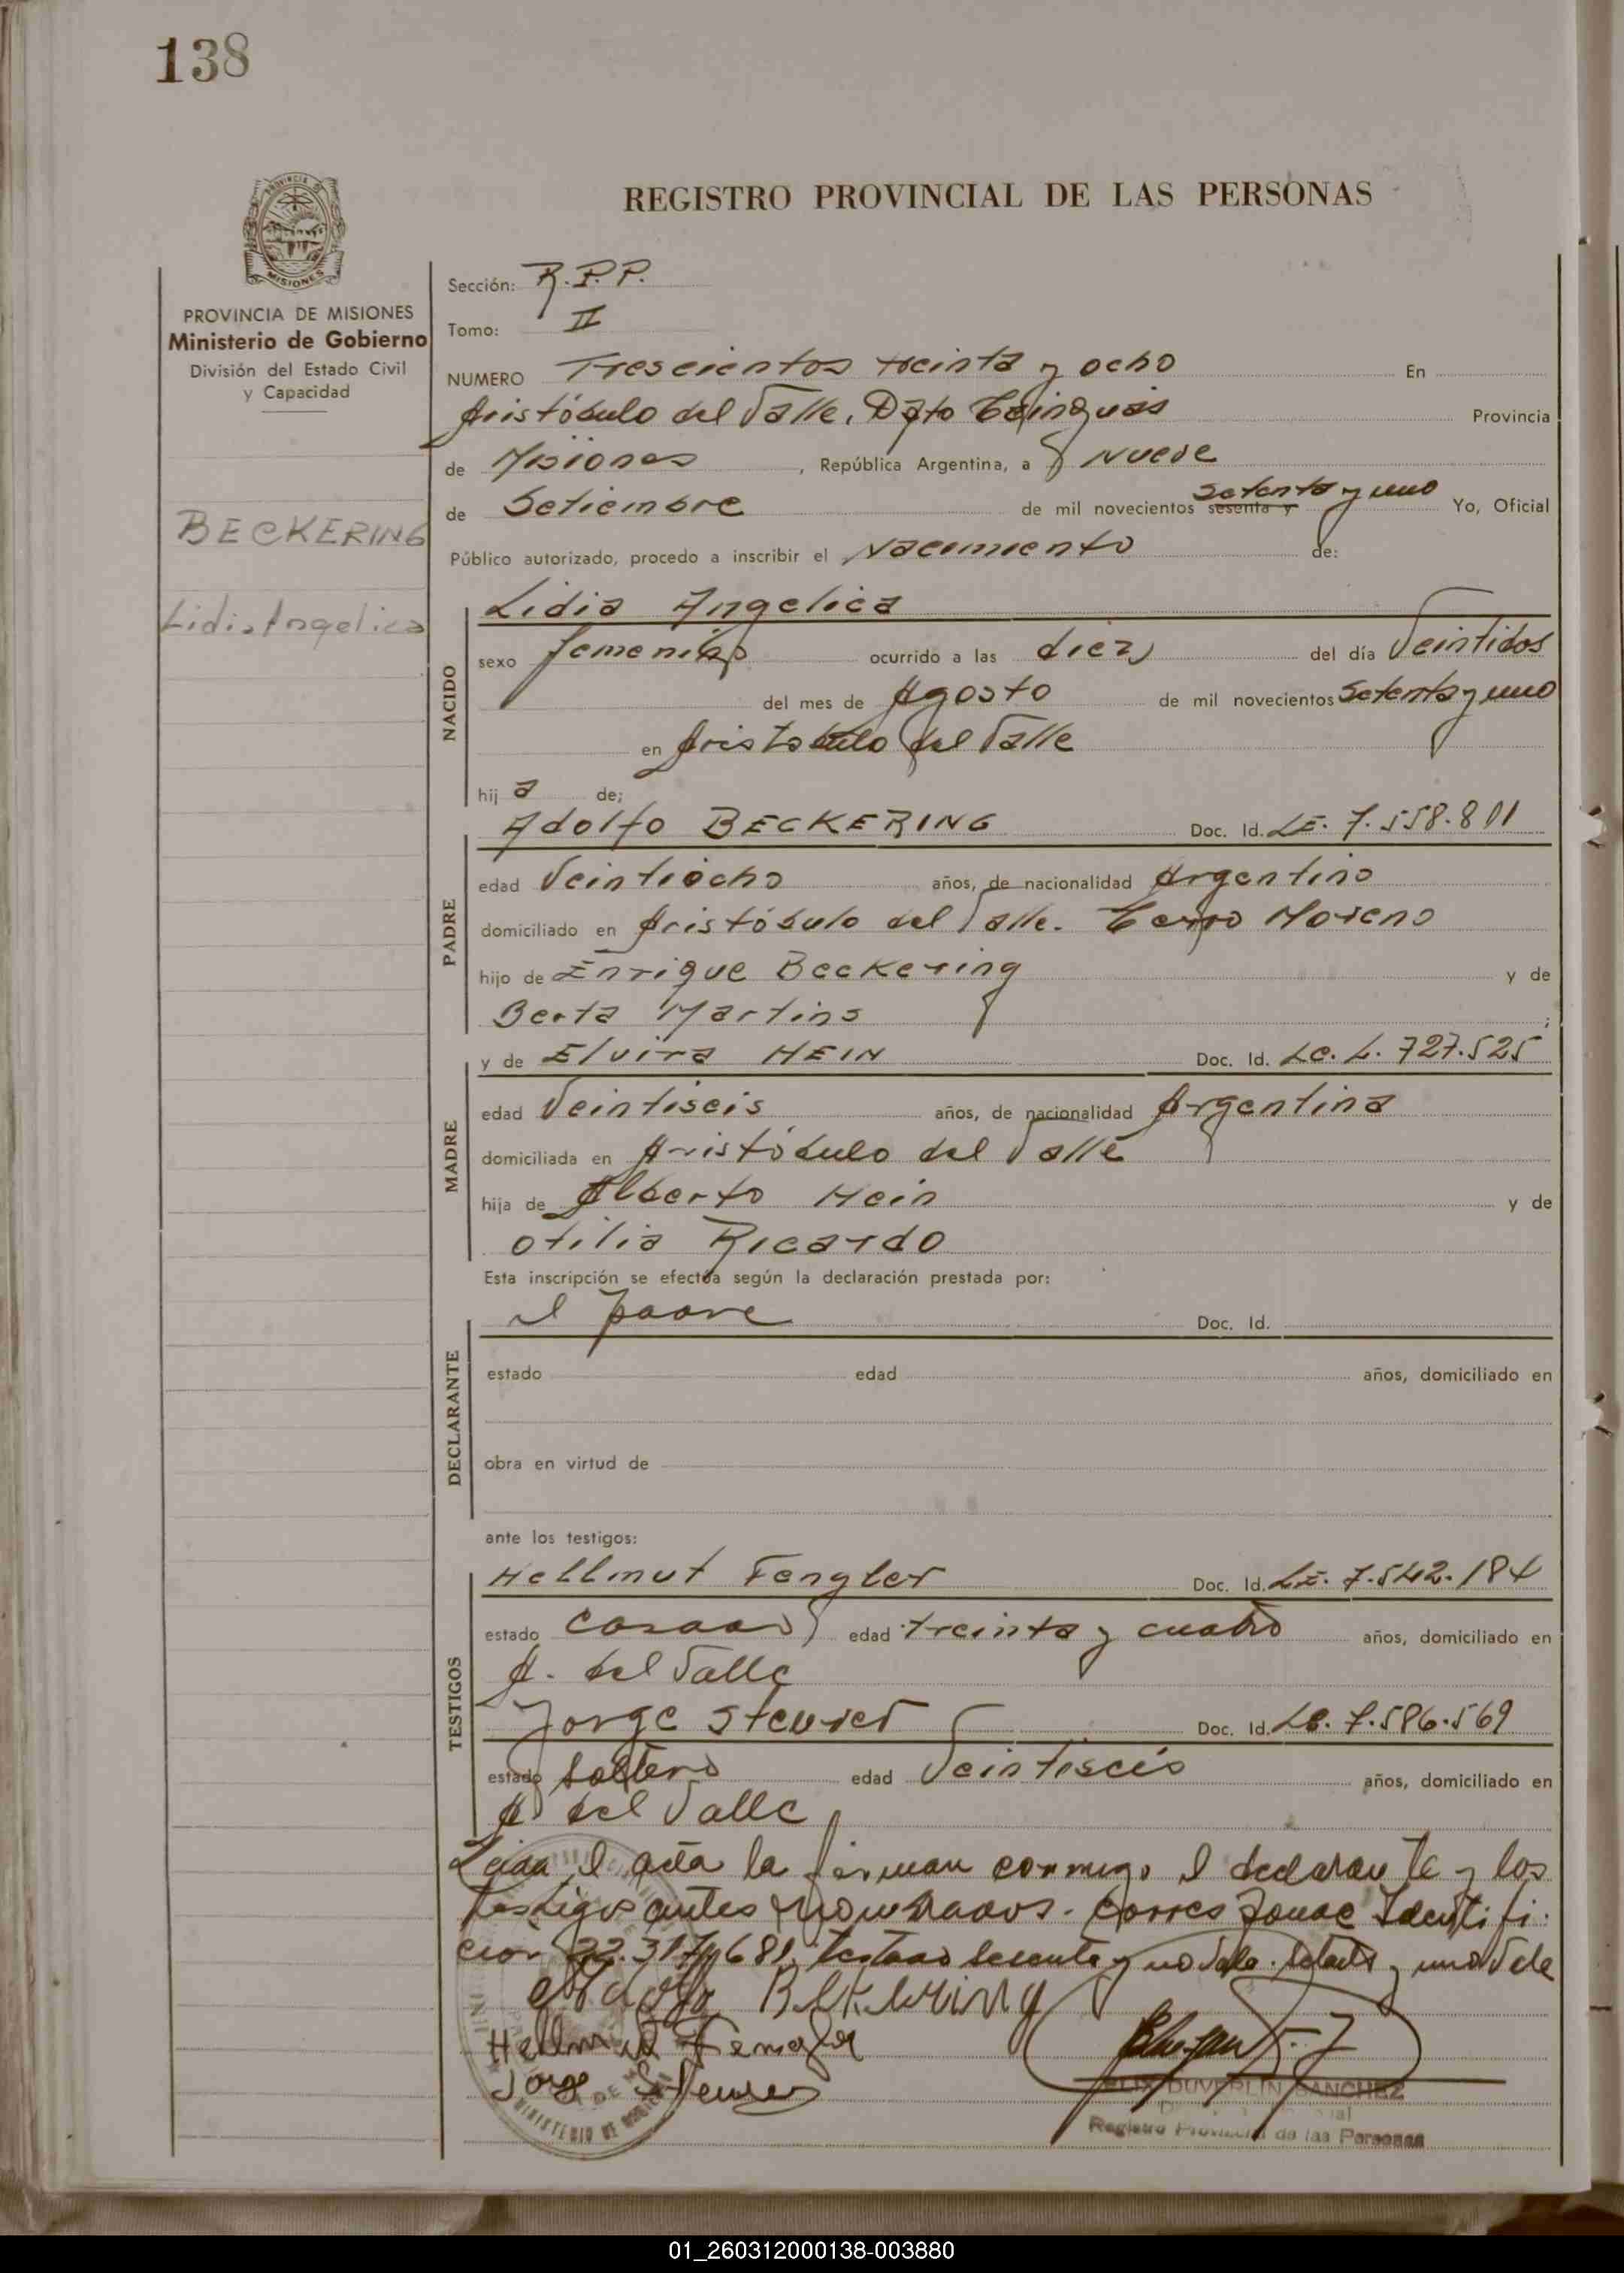 138
REGISTRO PROVINCIAL DE LAS PERSONAS
PROVINCIA DE MISIONES
Ministerio de Gobierno
División del Estado Civil
y Capacidad
BECKERING
Lidia Angelica
Sección: R.P.P.
Tomo: II
NUMERO Trescientos treinta y ocho En
Aristóbulo del Valle, Dpto Cainguás Provincia
de Misiones, República Argentina, a Nueve
de Setiembre de mil novecientos sesenta y setenta y uno Yo, Oficial
Público autorizado, procedo a inscribir el Nacimiento de:
NACIDO
Lidia Angelica
sexo femenino ocurrido a las diez del día Veintidos
del mes de Agosto de mil novecientos Setenta y uno
en Aristobulo del Valle
hij a de;
PADRE
Adolfo BECKERING Doc. Id. LE. 7.558.801
edad Veintiocho años, de nacionalidad Argentino
domiciliado en Aristóbulo del Valle. Cerro Moreno
hijo de Enrique Beckering y de
Berta Martins ;
MADRE
y de Elvira HEIN Doc. Id. LC. L. 727.525
edad Veintiseis años, de nacionalidad Argentina
domiciliada en Aristóbulo del Valle
hija de Alberto Hein y de
Otilia Ricardo
Esta inscripción se efectúa según la declaración prestada por:
DECLARANTE
el padre Doc. Id.
estado edad años, domiciliado en
obra en virtud de
ante los testigos:
TESTIGOS
Hellmut Fengler Doc. Id. LE. 7.542.184
estado casado edad treinta y cuatro años, domiciliado en
A. del Valle
Jorge Steurer Doc. Id. LE. 7.586.569
estado soltero edad Veintiseis años, domiciliado en
A. del Valle
Leida el acta la firman conmigo el declarante y los
testigos antes nombrados. Corresponde Identifi-
ción 22.317.681. testado sesenta y no vale. setenta y uno vale
Adolfo Bekering
Hellmut Fengler
Jorge Steurer
DUVERLIN SANCHEZ
Registro Provincial de las Personas
MINISTERIO DE GOBIERNO
01_260312000138-003880